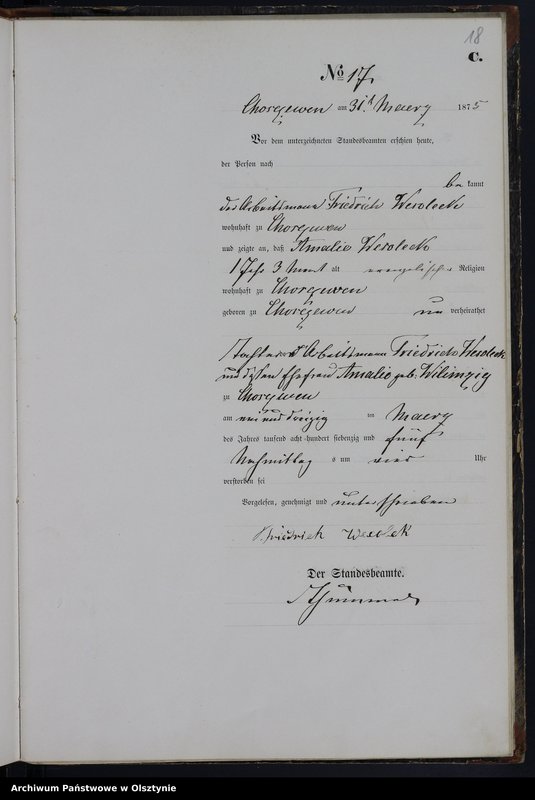 18
C.
No 17.
am 31t Maerz 1875
Vor dem unterzeichneten Standesbeamten erschien heute,
der Person nach
be kannt
der Arbeitsmann Friedrich
wohnhaft zu
und zeigte an, daß Amalie
1 Jahr 3 Monat alt evangelischer Religion
wohnhaft zu
geboren zu un verheirathet
Tochter Arbeitsmann Friedrich
und dessen Ehefrau Amalie geb:
zu
am ein und dreizig ten Maerz
des Jahres tausend acht hundert siebenzig und fünf
Nachmittag s um vier Uhr
verstorben sei
Vorgelesen, genehmigt und unterschrieben
Friedrich
Der Standesbeamte.
Archiwum Państwowe w Olsztynie